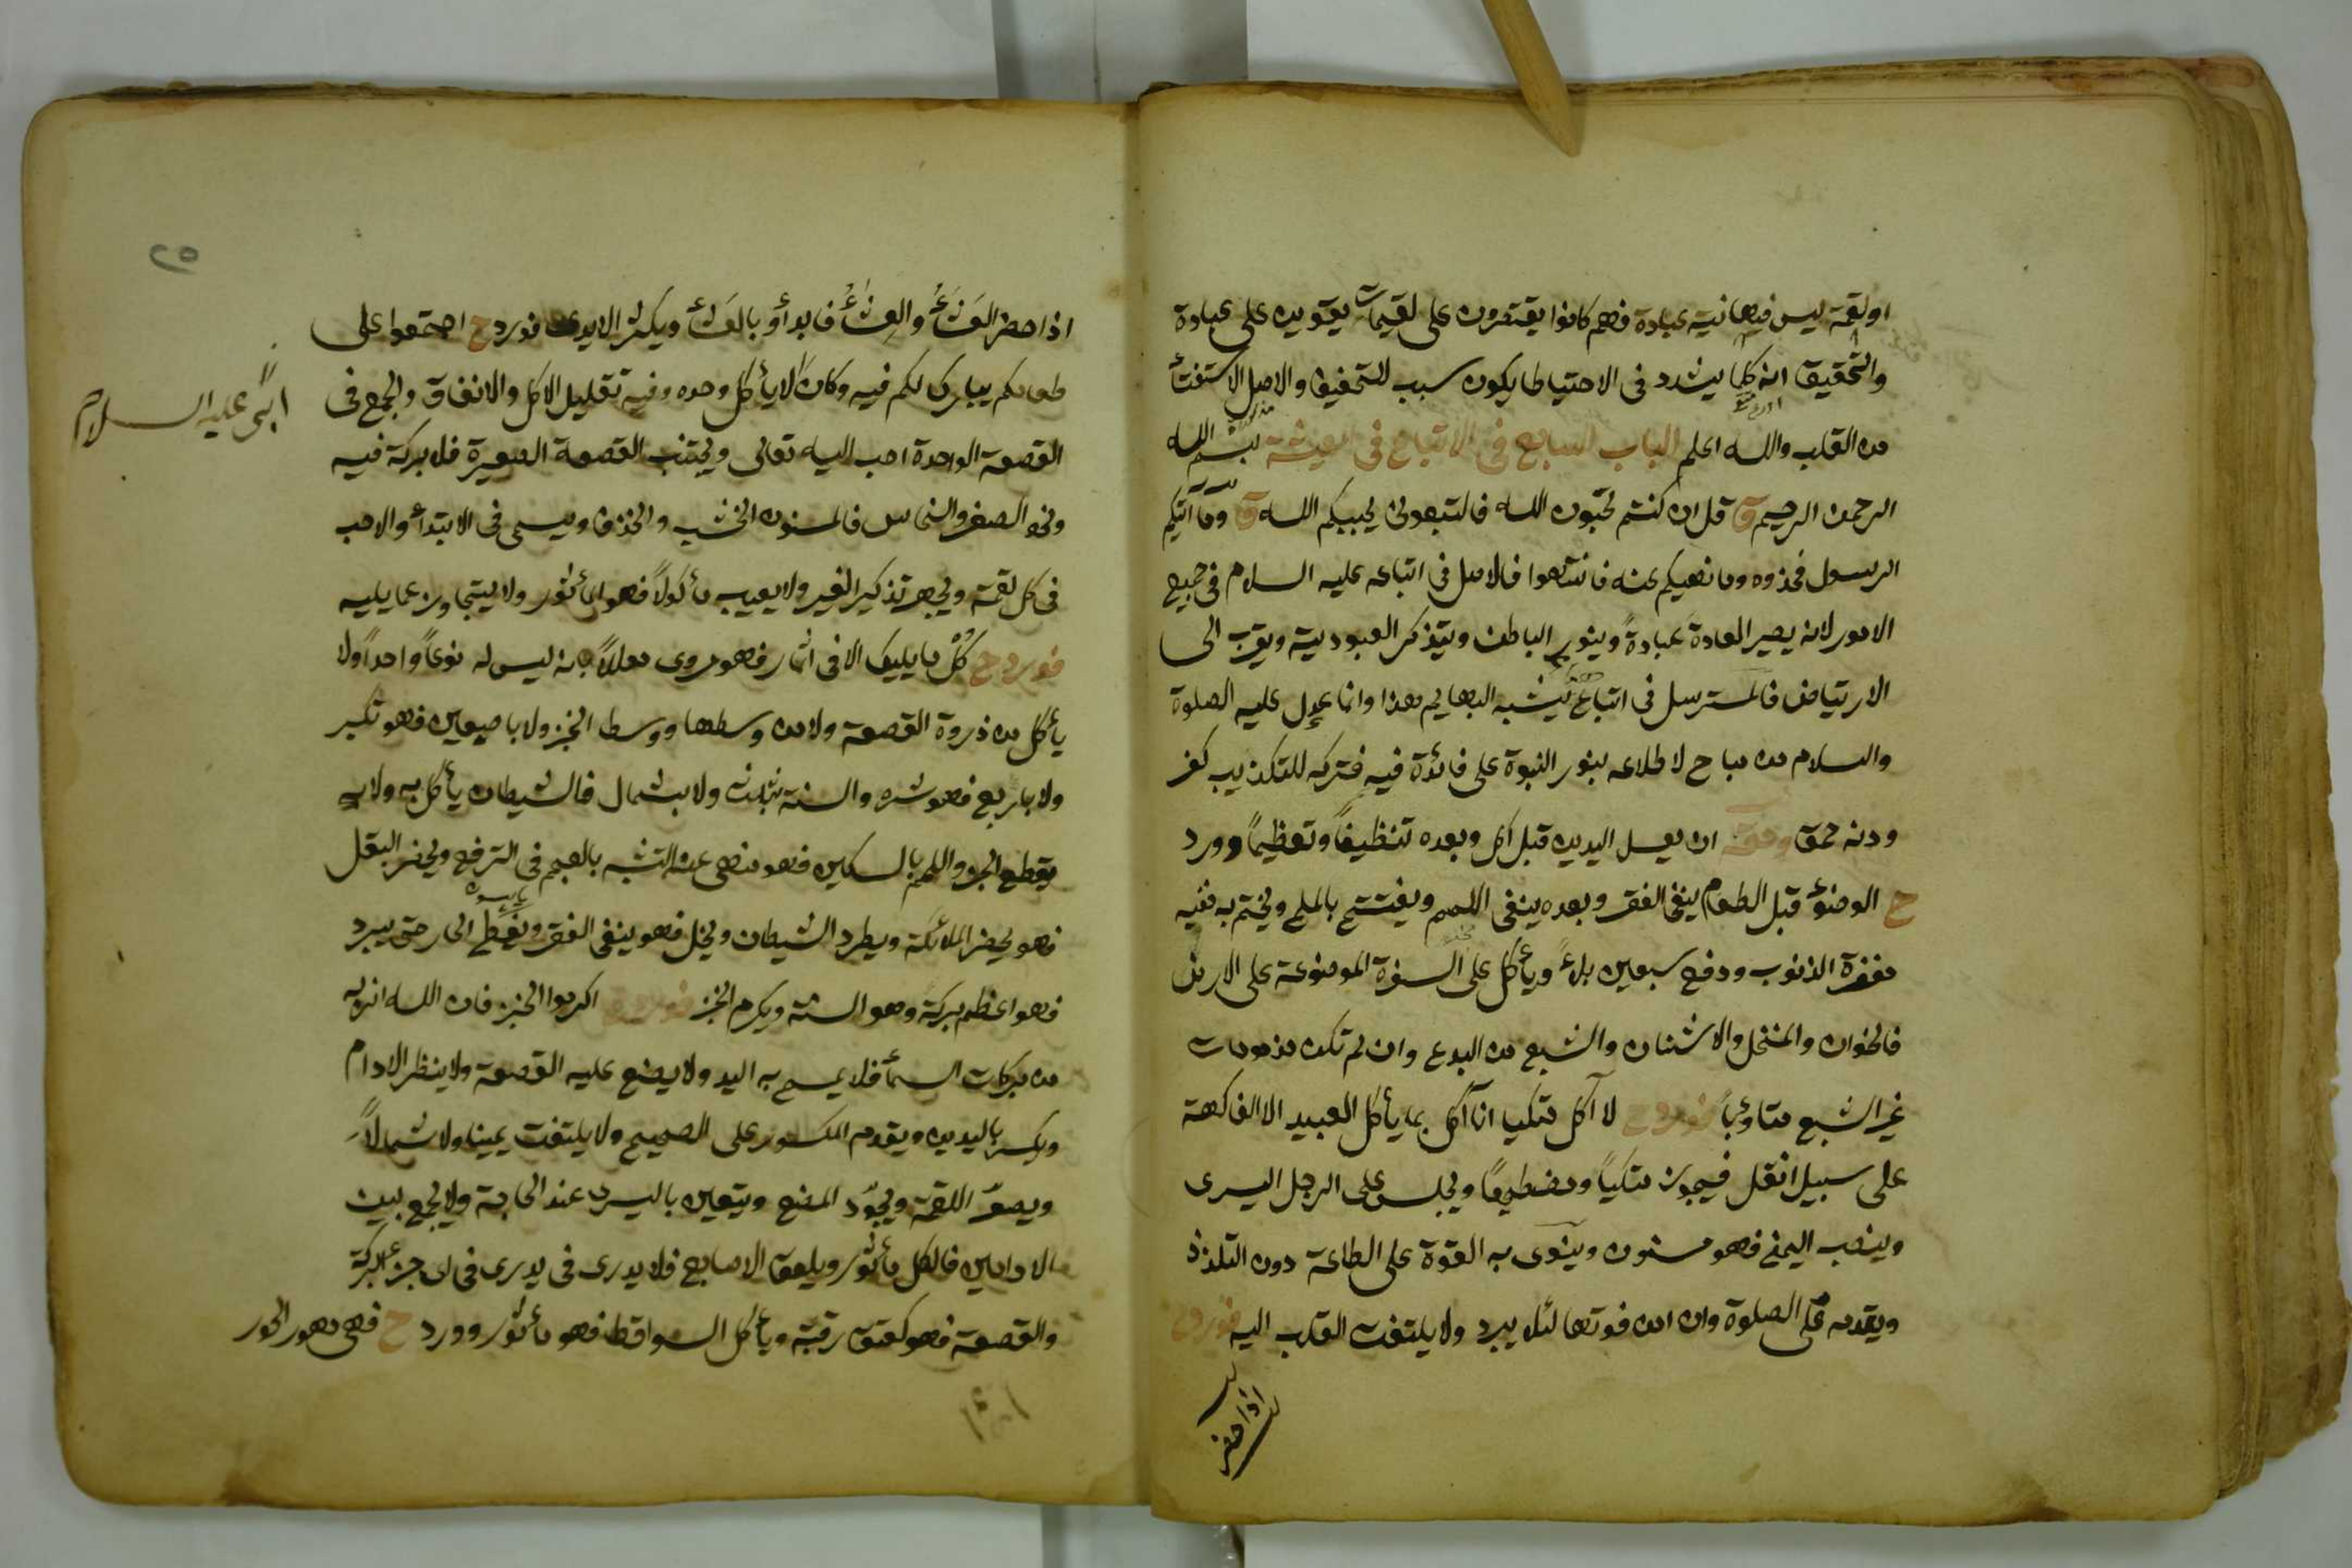 او لقمة ليس فيها نية عبادة فهم كانوا يقتصرون على لقيمات يقوين على عبادة
والتحقيق انه كلما يشدد في الاحتياط يكون سبب للتخفيف والاصل الاستفتاء
من القلب والله اعلم الباب السابع في الاتباع في المعيشة بسم الله
الرحمن الرحيم ق قل ان كنتم تحبون الله فاتبعوني يحببكم الله ق وما آتيكم
الرسول فخذوه وما نهيكم عنه فانتهوا فالاصل في اتباعه عليه السلام في جميع
الامور لانه يصير العادة عبادةً وينور الباطن ويتذكر العبودية ويقرب الى
الارتياض فالمسترسل في اتباع يشبه البهايم هذا وانما عدل عليه الصلوة
والسلام من مباح لاطلاعه بنور النبوة على فائدة فيه فتركه للتكذيب كفر
ودنه حمق وحقه ان يغسل اليدين قبل اكل وبعده تنظيفاً وتعظيماً وورد
ح الوضوء قبل الطعام ينفي الفقر وبعده ينفي اللمم ويفتتح بالملح ويختم به ففيه
مغفرة الذنوب ودفع سبعين بلاءً ويأكل على السفرة الموضوعة على الارض
فالخوان والمنخل والاشنان والشبع من البدع وان لم تكن مذمومات
غير الشبع متأوباً فورد ح لا آكل متكيا انا آكل بما يأكل العبيد الا الفاكهة
على سبيل انقل فيجوز متكياً ومضطجعاً ويجلس على الرجل اليسرى
وينصب اليمنى فهو مسنون وينوى به القوة على الطاعة دون التلذذ
ويقدمه على الصلوة وان امن فوتها لئلا يبرد ولا يلتفت القلب اليه فورد ح
اذا حضر
٢٥
اذا حضر العَشَاءُ والعِشَاءُ فابدأو بالعَشَاء ويكثر الايدى فورد ح اجتمعوا على
طعامكم يبارك لكم فيه وكان لا يأكل وحده وفيه تقليل الاكل والانفاق والجمع في
النبي عليه السلام
القصعة الواحدة احب اليه تعالى ويجتنب القصعة الصغيرة فلا بركة فيه
ونحو الصفر والنحاس فالمسنون الخشب والخذف ويسمى في الابتدأ والاحب
في كل لقمة ويجهر تذكير الغير ولا يعيب مأكولاً فهو المأثور ولا يتجاوز عما يليه
فورد ح كُلْ ما يليك الا في اثمار فهو مروى معللاً بانه ليس له نوعاً واحداً ولا
يأكل من ذروة القصعة ولا من وسطها ووسط الخبز ولا باصبعين فهو تكبر
ولا باربع فهو شره والسنة بثلاثة ولا بشمال فالشيطان يأكل به ولا
يقطع الخبز واللحم بالسكين فهو منهى عنه التشبه بالعجم في الترفع ويحضر البقل
فهو يحضر الملائكة ويطرد الشيطان ونخل فهو ينفي الفقر ويغطى الحار حتى يبرد
فهو اعظم بركة وهو السنة ويكرم الخبز فورد ح اكرموا الخبز فان الله انزله
من بركات السماء فلا يمسح به اليد ولا يضع عليه القصعة ولا ينظر الادام
ويكسر باليدين ويقدم المكسور على الصحيح ولا يلتفت يمينا ولا شمالاً
ويصغر اللقمة ويجوّد المضغ ويتعين باليسرى عند الحاجة ولا يجمع بين
الادامين فالكل مأثور ويلعق الاصابع فلا يدرى في يدرى في اى جزء البركة
والقصعة فهو كعتق رقبة ويأكل السواقط فهو مأثور وورد ح فهى مهور الحور